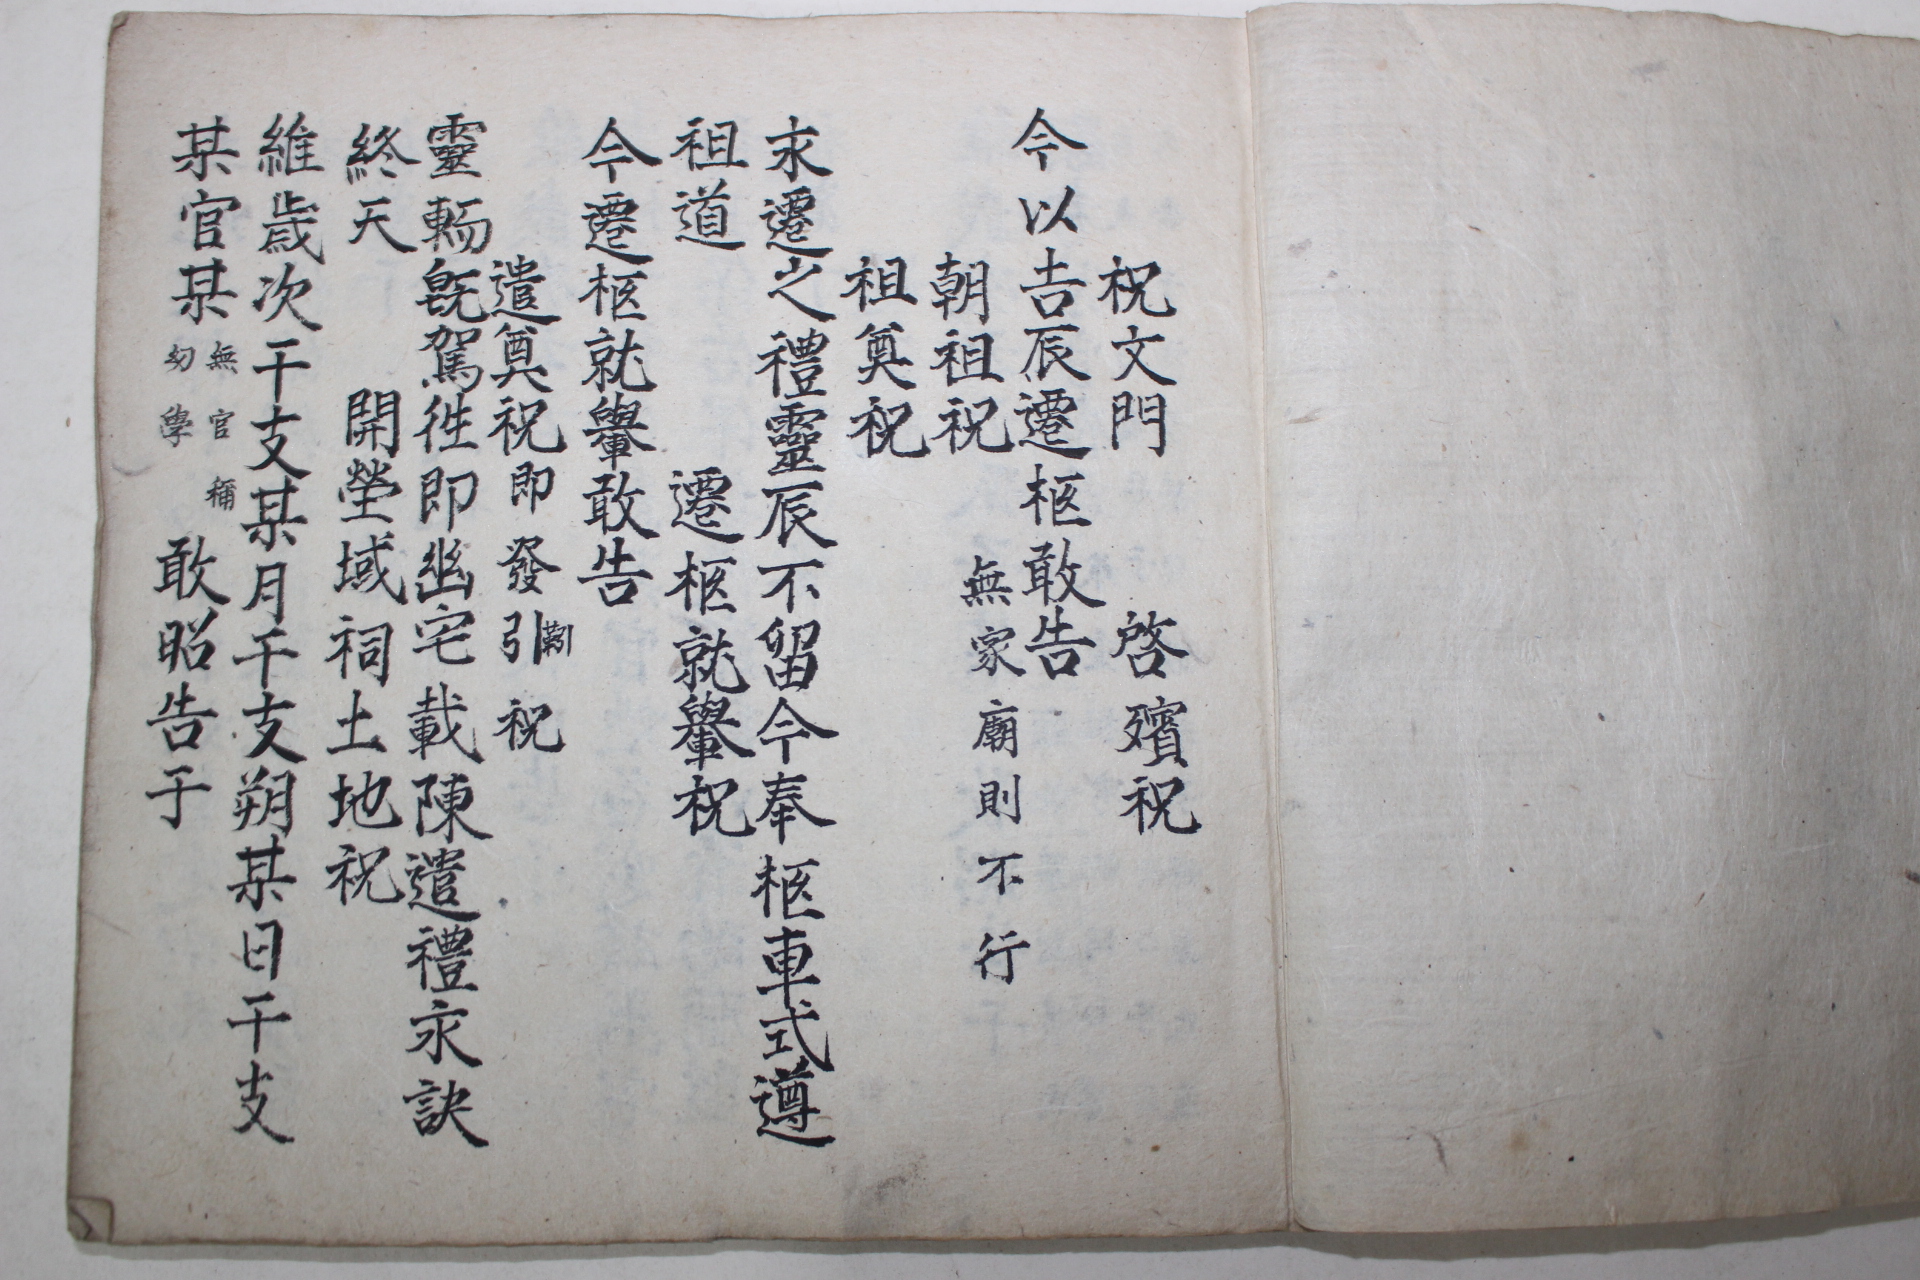 祝文門 啓殯祝
今以吉辰遷柩敢告
朝祖祝 無家廟則不行
祖奠祝
永遷之禮靈辰不留今奉柩車式遵
祖道 遷柩就轝祝
今遷柩就轝敢告
遣奠祝即發引靷祝
靈輀旣駕徃即幽宅載陳遣禮永訣
終天 開塋域祠土地祝
維歲次干支某月干支朔某日干支
某官某 無官稱幼學 敢昭告于